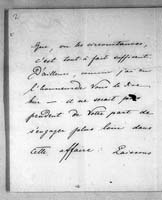 Que, vu les circonstances,
c'est tout à fait suffisant.
D'ailleurs, comme j'ai eu
l'honneur de vous le dire
hier — il ne serait pas
prudent de votre part de
s'engager plus loin dans
cette affaire. Laissons